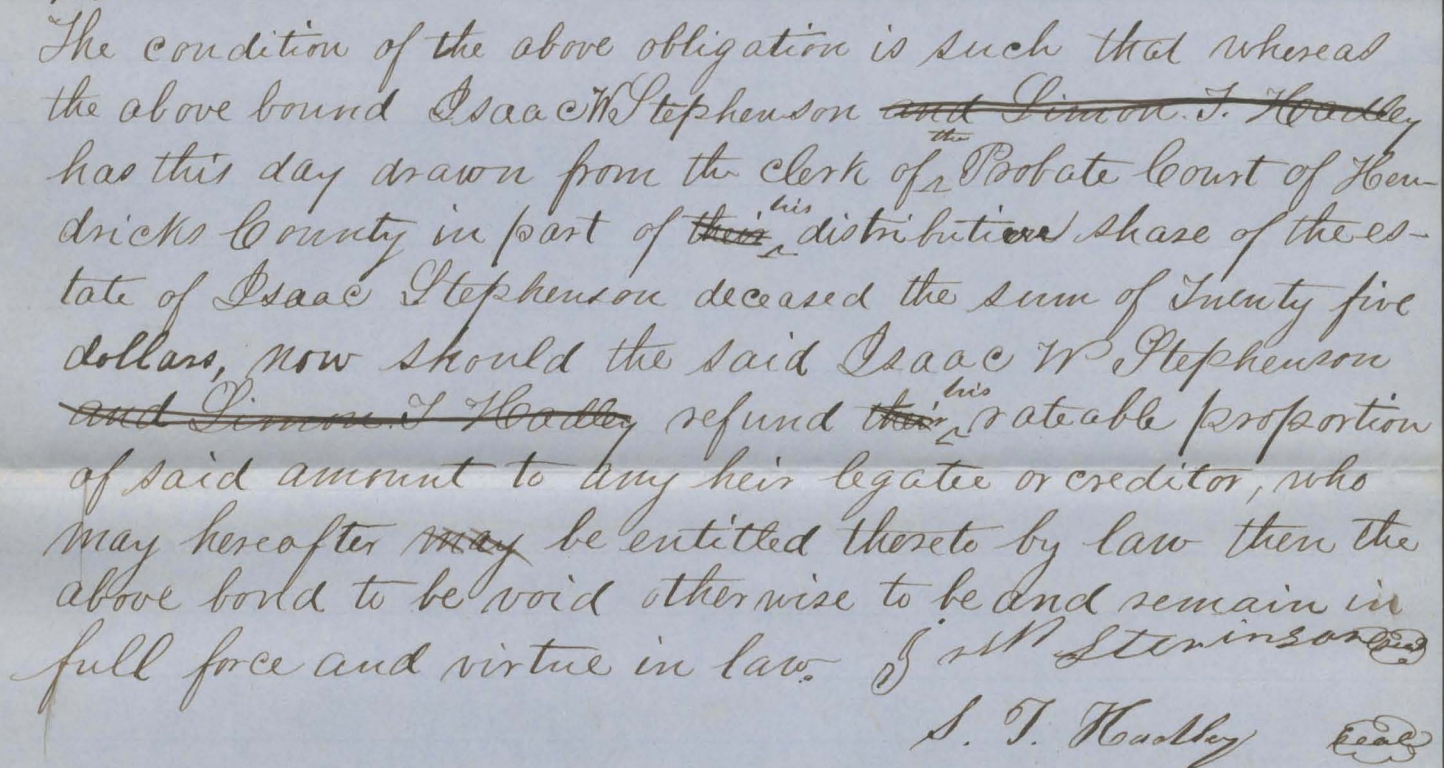 The condition of the above obligation is such that whereas
the above bound Isaac W Stephenson and Simon T. Hadley
has this day drawn from the clerk of the Probate Court of Hen-
dricks County in part of their his distributive share of the es-
tate of Isaac Stephenson deceased the sum of Twenty five
dollars, now should the said Isaac W Stephenson
and Simon T Hadley refund their his rateable proportion
of said amount to any heir legatee or creditor, who
may hereafter may be entitled thereto by law then the
above bond to be void otherwise to be and remain in
full force and virtue in law.
W Steninson seal
S. T. Hadley seal